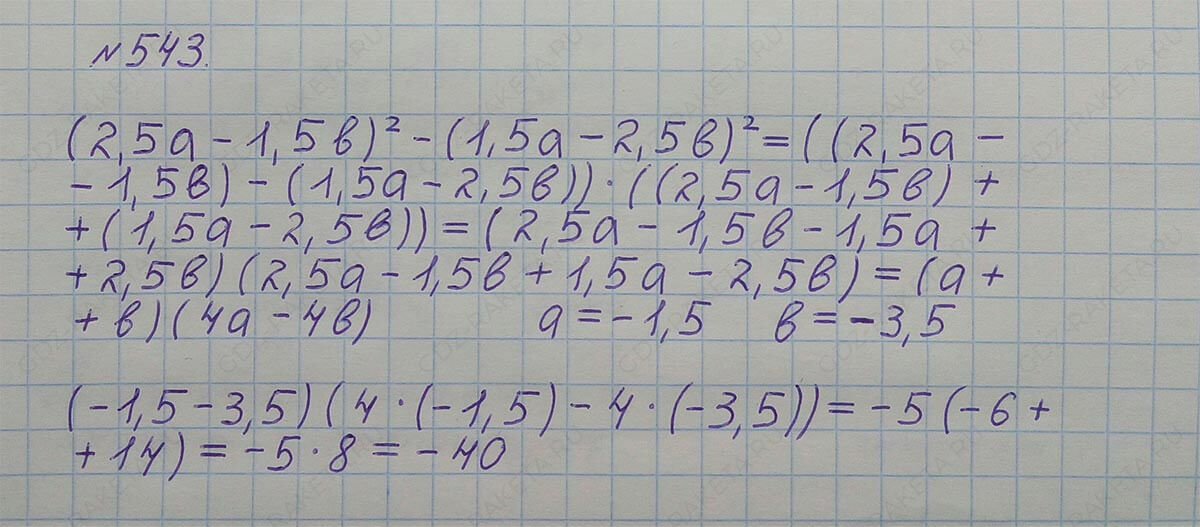 №543.
(2,5а - 1,5в)² - (1,5а - 2,5в)² = ((2,5а -
- 1,5в) - (1,5а - 2,5в)) · ((2,5а - 1,5в) +
+ (1,5а - 2,5в)) = (2,5а - 1,5в - 1,5а +
+ 2,5в) (2,5а - 1,5в + 1,5а - 2,5в) = (а +
+ в) (4а - 4в) а = -1,5 в = -3,5
(-1,5 - 3,5) (4 · (-1,5) - 4 · (-3,5)) = -5 (-6 +
+ 14) = -5 · 8 = -40